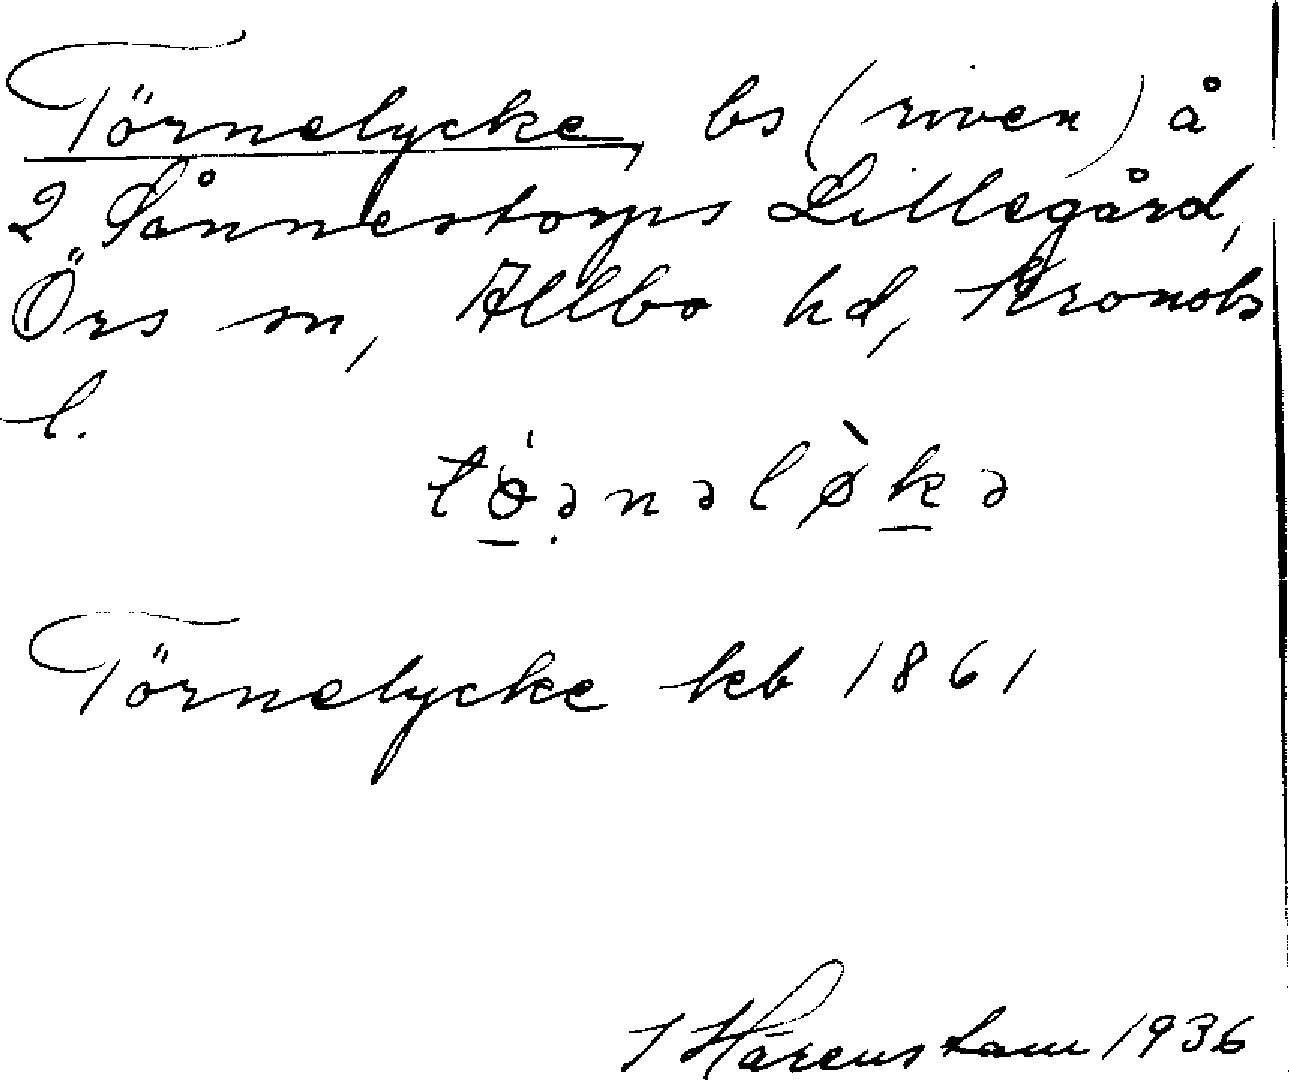 Törnelycke, bs (riven) å
2 Sånnestorps Lillegård,
Örs sn, Allbo hd, Kronobs
l.
tö́ənəlø̀kə
Törnelycke kb 1861
I Härenstam 1936